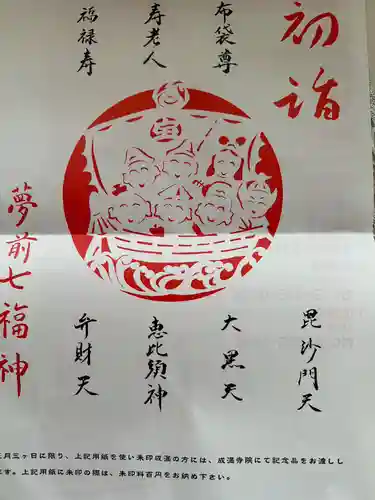 初詣
布袋尊
寿老人
福禄寿
宝
毘沙門天
大黒天
恵比須神
弁財天
夢前七福神
月三ヶ日に限り、上記用紙を使い朱印収集の方には、成満寺院にて記念品をお渡しし
ます。上記用紙に朱印の際は、朱印料百円をお納め下さい。